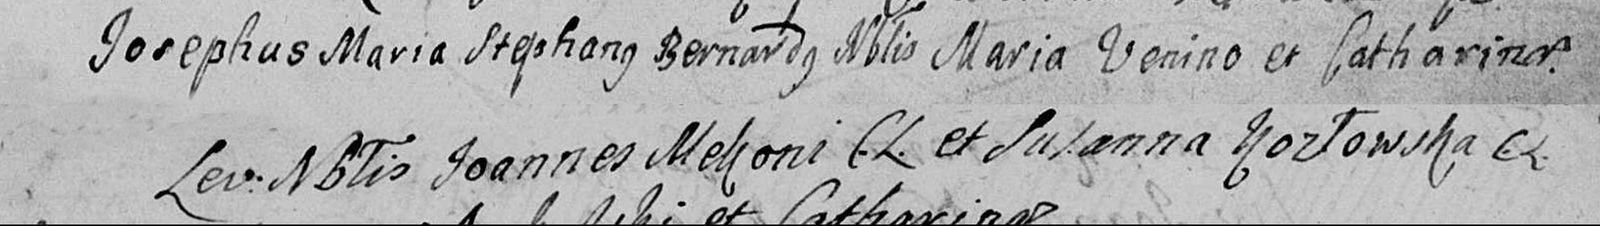 Josephus Maria Stephanꝰ Bernardꝰ Nbtis Maria Venino et Catharinæ
Lev: Nbtis Joannes Melzoni C.L. et Suzanna Kozłowska CL.
et Catharinæ